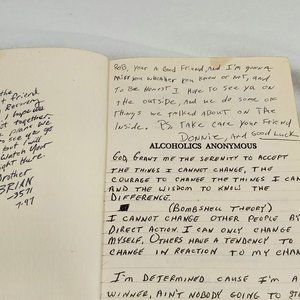 the
t friend
Recovery
I hope we
t together.
see ya go
but I'll
watch your
ght there.
Brother
BRIAN
-3571
7-97
ROB, YOUR A GOOD FRIEND AND I'M GONNA
MISS YOU WHEATHER YOU KNOW IT NOT, AND
TO BE HONEST I HOPE TO SEE YA ON
THE OUTSIDE, AND WE DO SOME OF
THINGS WE TALKED ABOUT ON THE
INSIDE. P.S. TAKE CARE YOUR FRIEND
DONNIE, AND GOOD LUCK
ALCOHOLICS ANONYMOUS
GOD, GRANT ME THE SERENITY TO ACCEPT
THE THINGS I CANNOT CHANGE, THE
COURAGE TO CHANGE THE THINGS I CAN
AND THE WISDOM TO KNOW THE
DIFFERENCE.
(BOMBSHELL THEORY)
I CANNOT CHANGE OTHER PEOPLE BY
DIRECT ACTION. I CAN ONLY CHANGE
MYSELF, OTHERS HAVE A TENDENCY TO
CHANGE IN REACTION TO MY CHAN
I'M DETERMINED CAUSE I'M A
WINNER, AIN'T NOBODY GOING TO ST